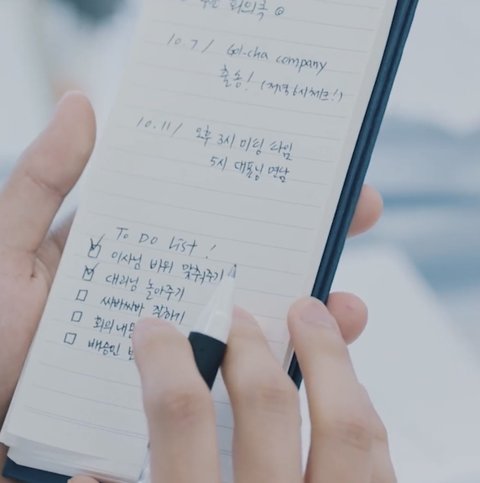 회의록
10.7/ Got-cha company
출송! (저녁 6시 체크!)
10.11/ 오후 3시 미팅 타임
5시 대표님 면담
To Do List!
이사님 비위 맞춰주기
대리님 놀아주기
싸바싸바 잘하기
회의 내
배송민